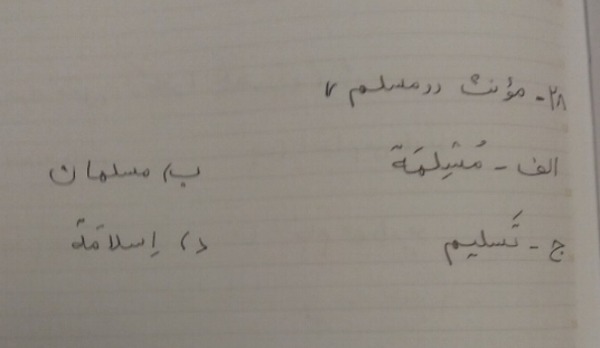 ۲۸- مؤنث «مسلم»
الف - مُسْلِمَة ب) مسلمان
ج - تَسلیم د) اِسلامَة